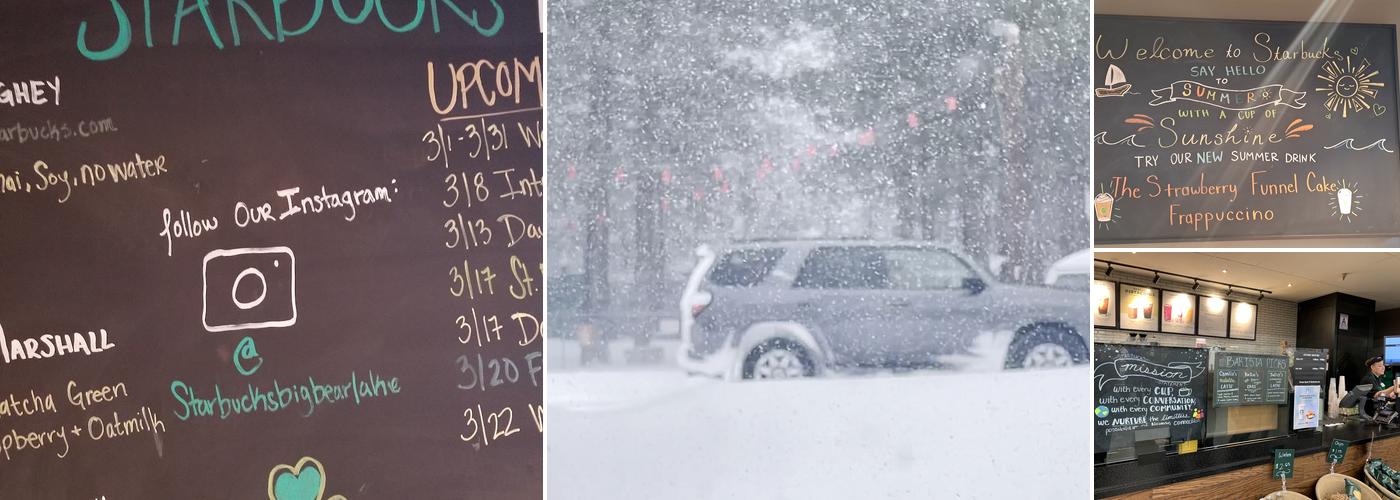 STARBUCKS
GHEY
arbucks.com
hai, Soy, no water
follow OUR Instagram:
@
Starbucksbigbearlake
MARSHALL
atcha Green
pberry + Oatmilk
UPCOM
3/1-3/31 We
3/8 Int
3/13 Day
3/17 St.
3/17 Do
3/20 F
3/22 W
Welcome to Starbucks
SAY HELLO
TO
SUMMER
WITH A CUP OF
Sunshine
TRY OUR NEW SUMMER DRINK
The Strawberry Funnel Cake
Frappuccino
mission
with every CUP,
with every CONVERSATION,
with every COMMUNITY,
WE NURTURE the limitless
possibilities of human connection
BARISTA PICKS